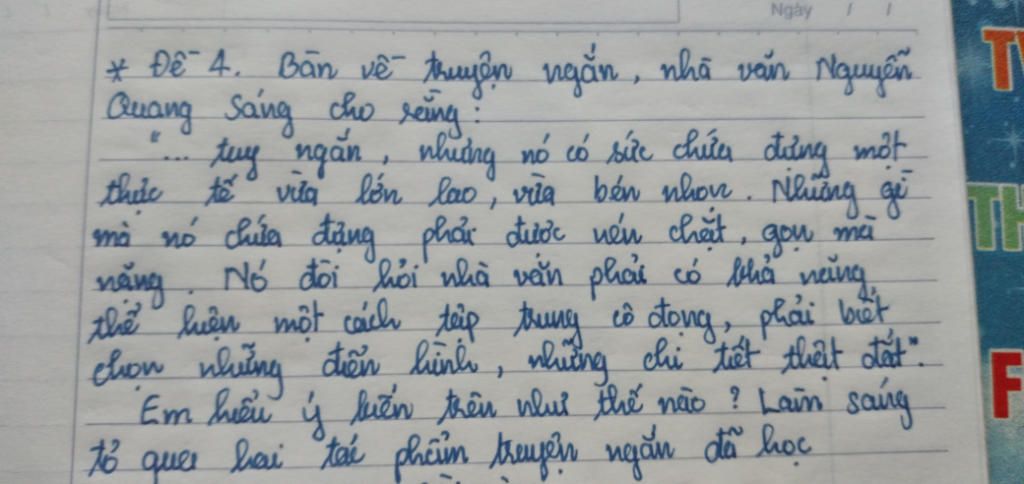 Ngày / /
* Đề 4. Bàn về truyện ngắn, nhà văn Nguyễn
Quang Sáng cho rằng:
"... tuy ngắn, nhưng nó có sức chứa đựng một
thực tế vừa lớn lao, vừa bén nhọn. Những gì
mà nó chứa đựng phải được nén chặt, gọn mà
nặng. Nó đòi hỏi nhà văn phải có khả năng
thể hiện một cách tập trung cô đọng, phải biết
chọn những điển hình, những chi tiết thật đắt".
Em hiểu ý kiến trên như thế nào? Làm sáng
tỏ qua hai tác phẩm truyện ngắn đã học
TH
F